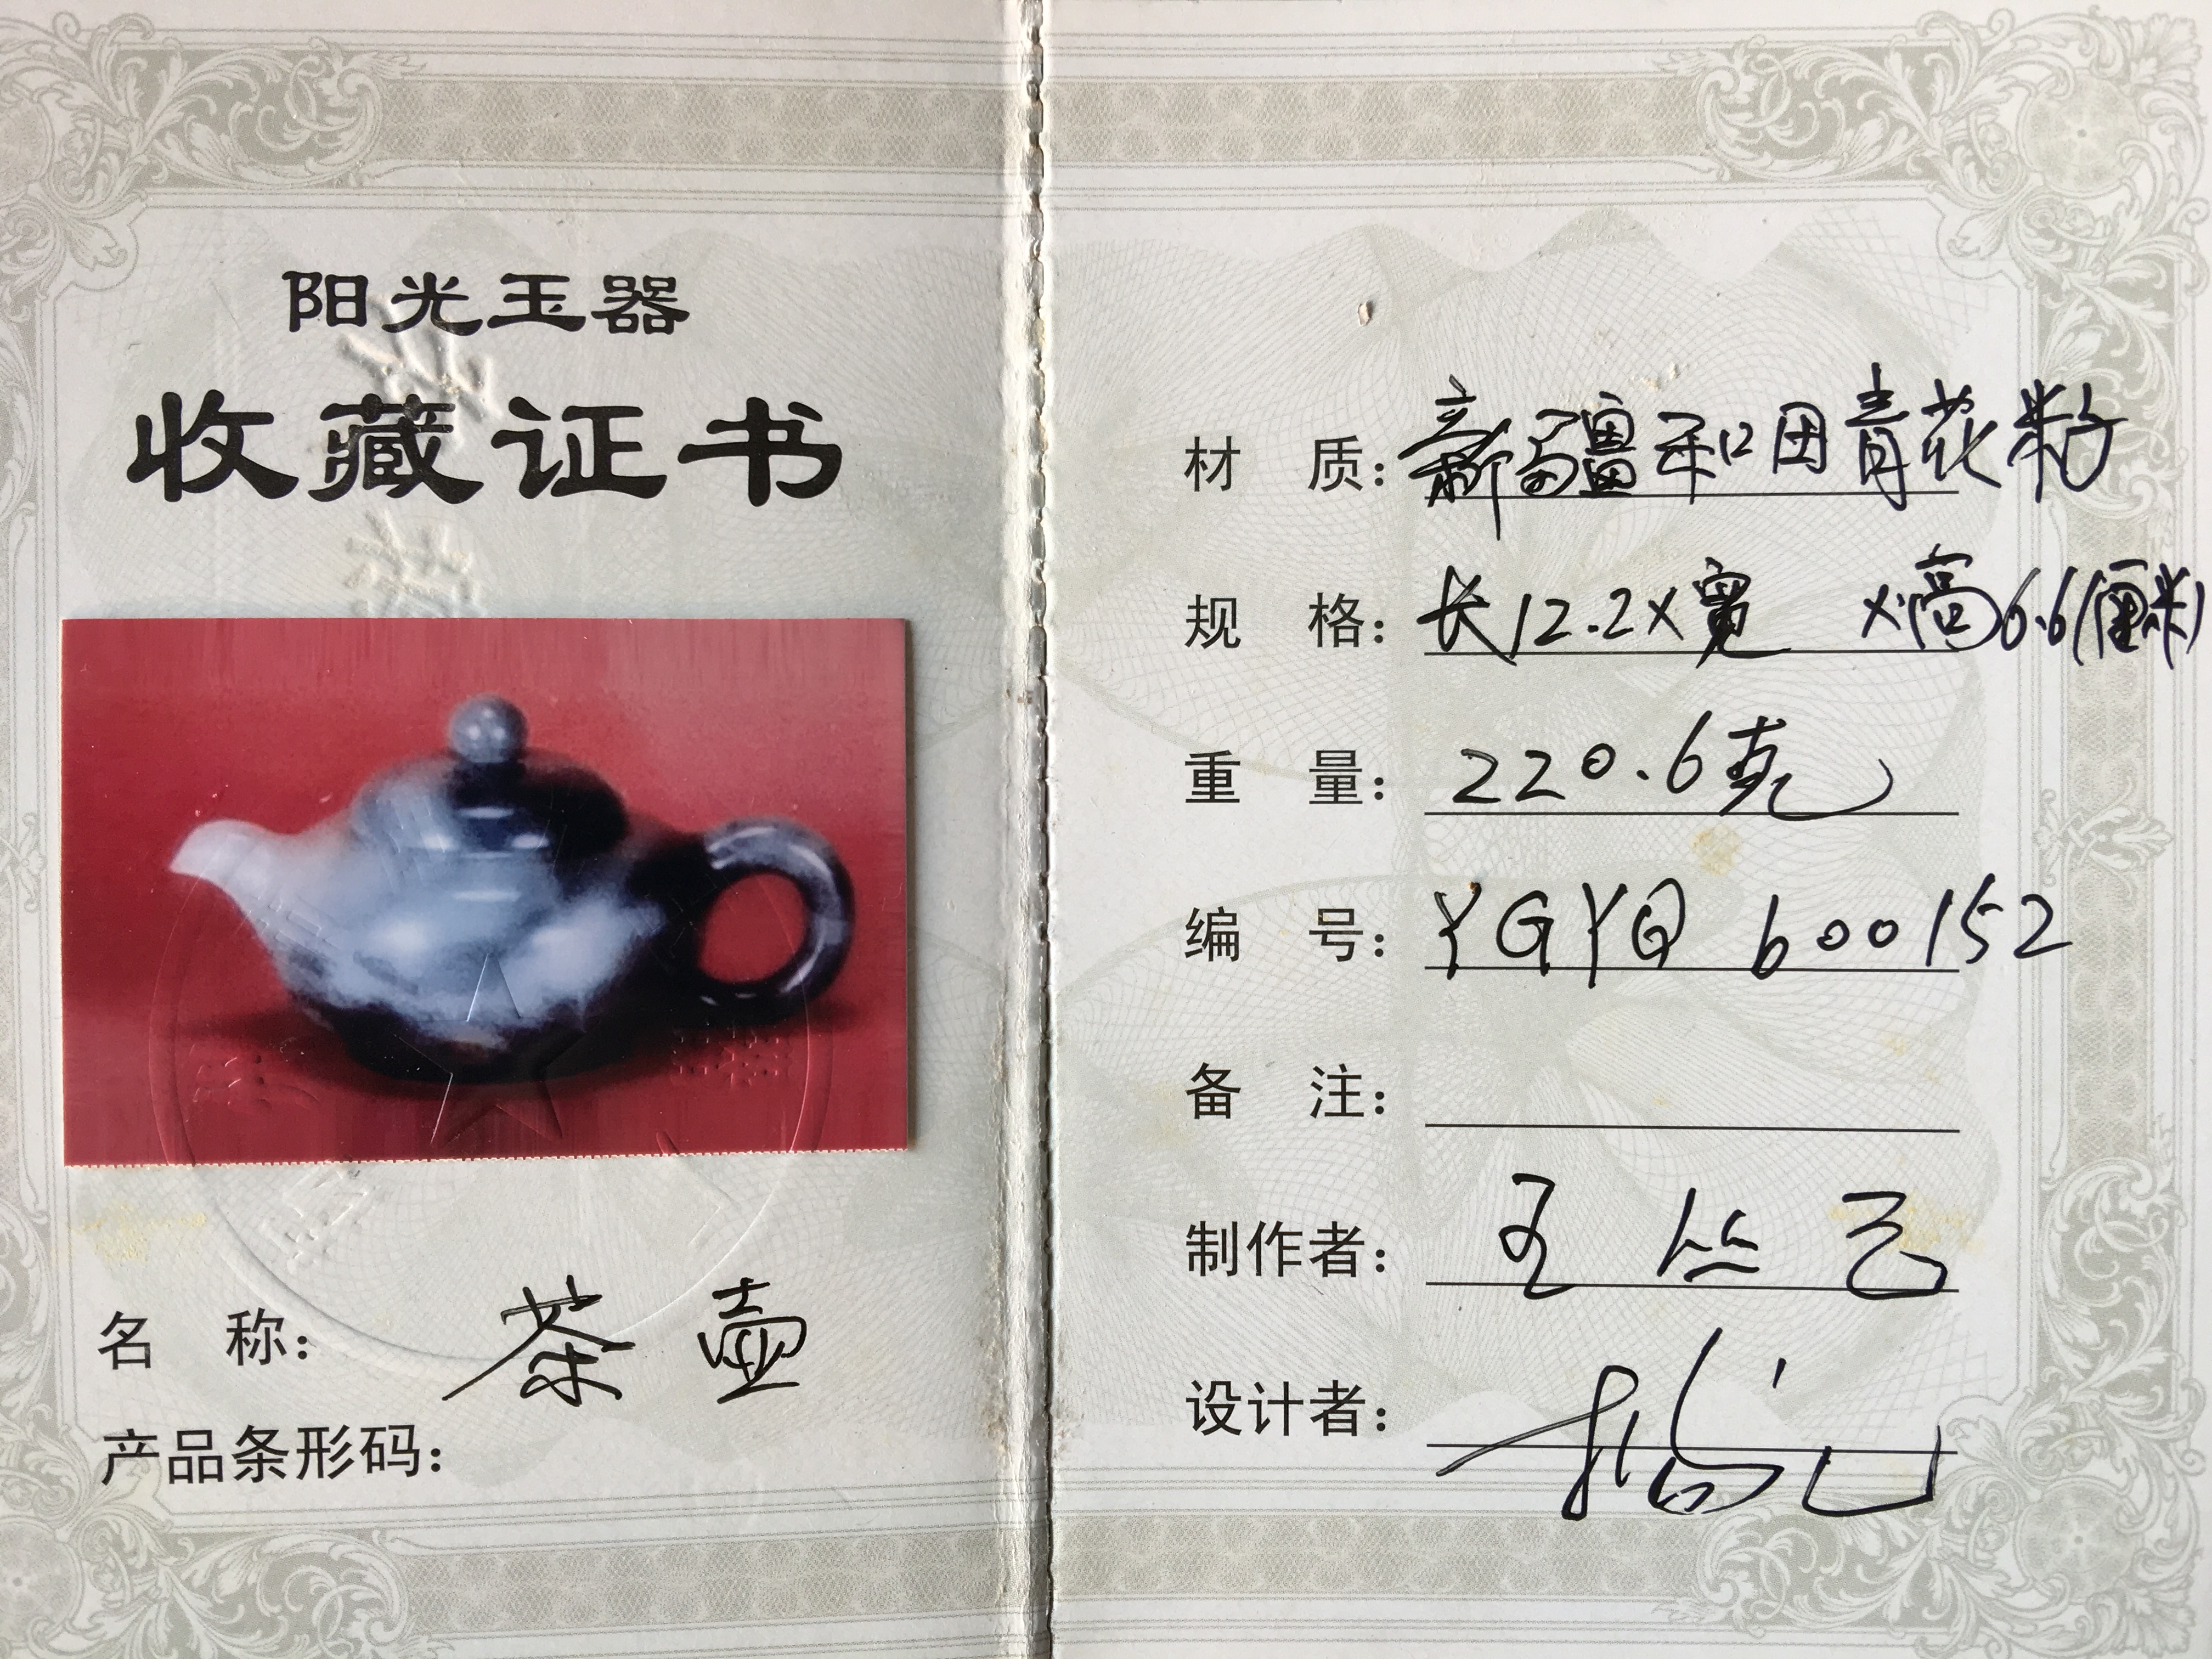 阳光玉器
收藏证书
名 称： 茶壶
产品条形码：
材 质： 新疆和田青花籽
规 格： 长12.2×宽 ×高6.6(厘米)
重 量： 220.6克
编 号： YGYQ 600152
备 注：
制作者： 王
设计者：